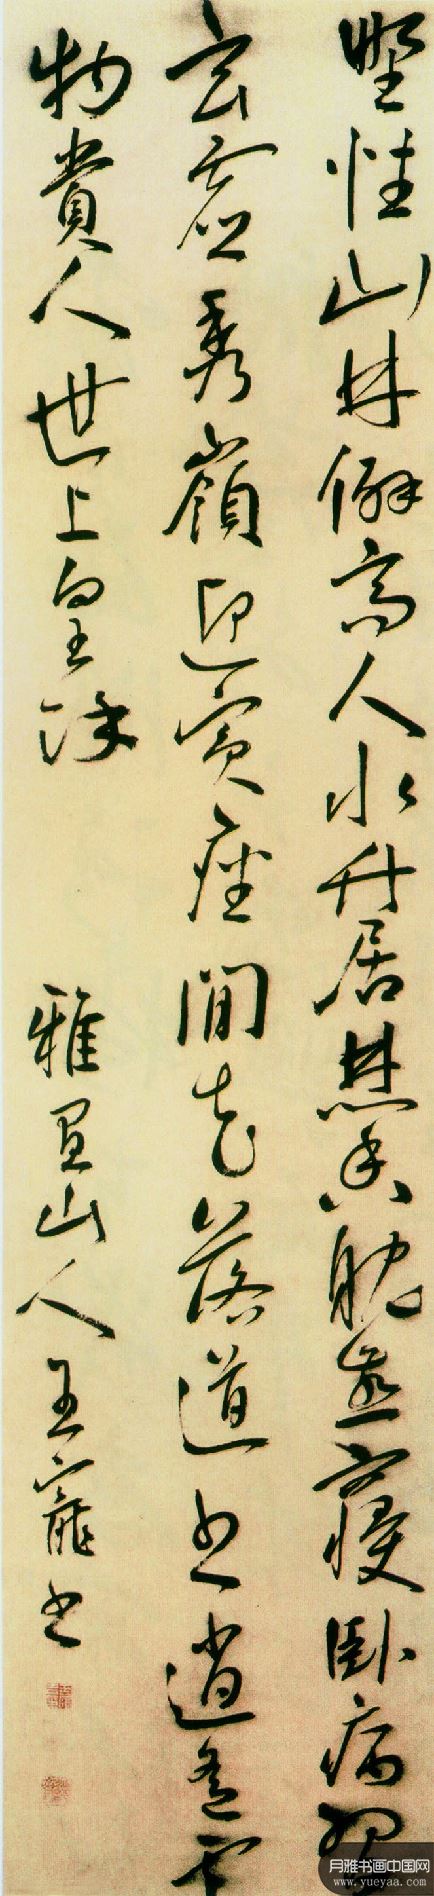 野性山林僻高人水竹居焚香耽燕寢臥病習
玄虛秀嶺迎賓座閒花落道書逍遙雲
物賞人世上皇餘
雅宜山人王寵書
月雅书画中国网
www.yueyaa.com